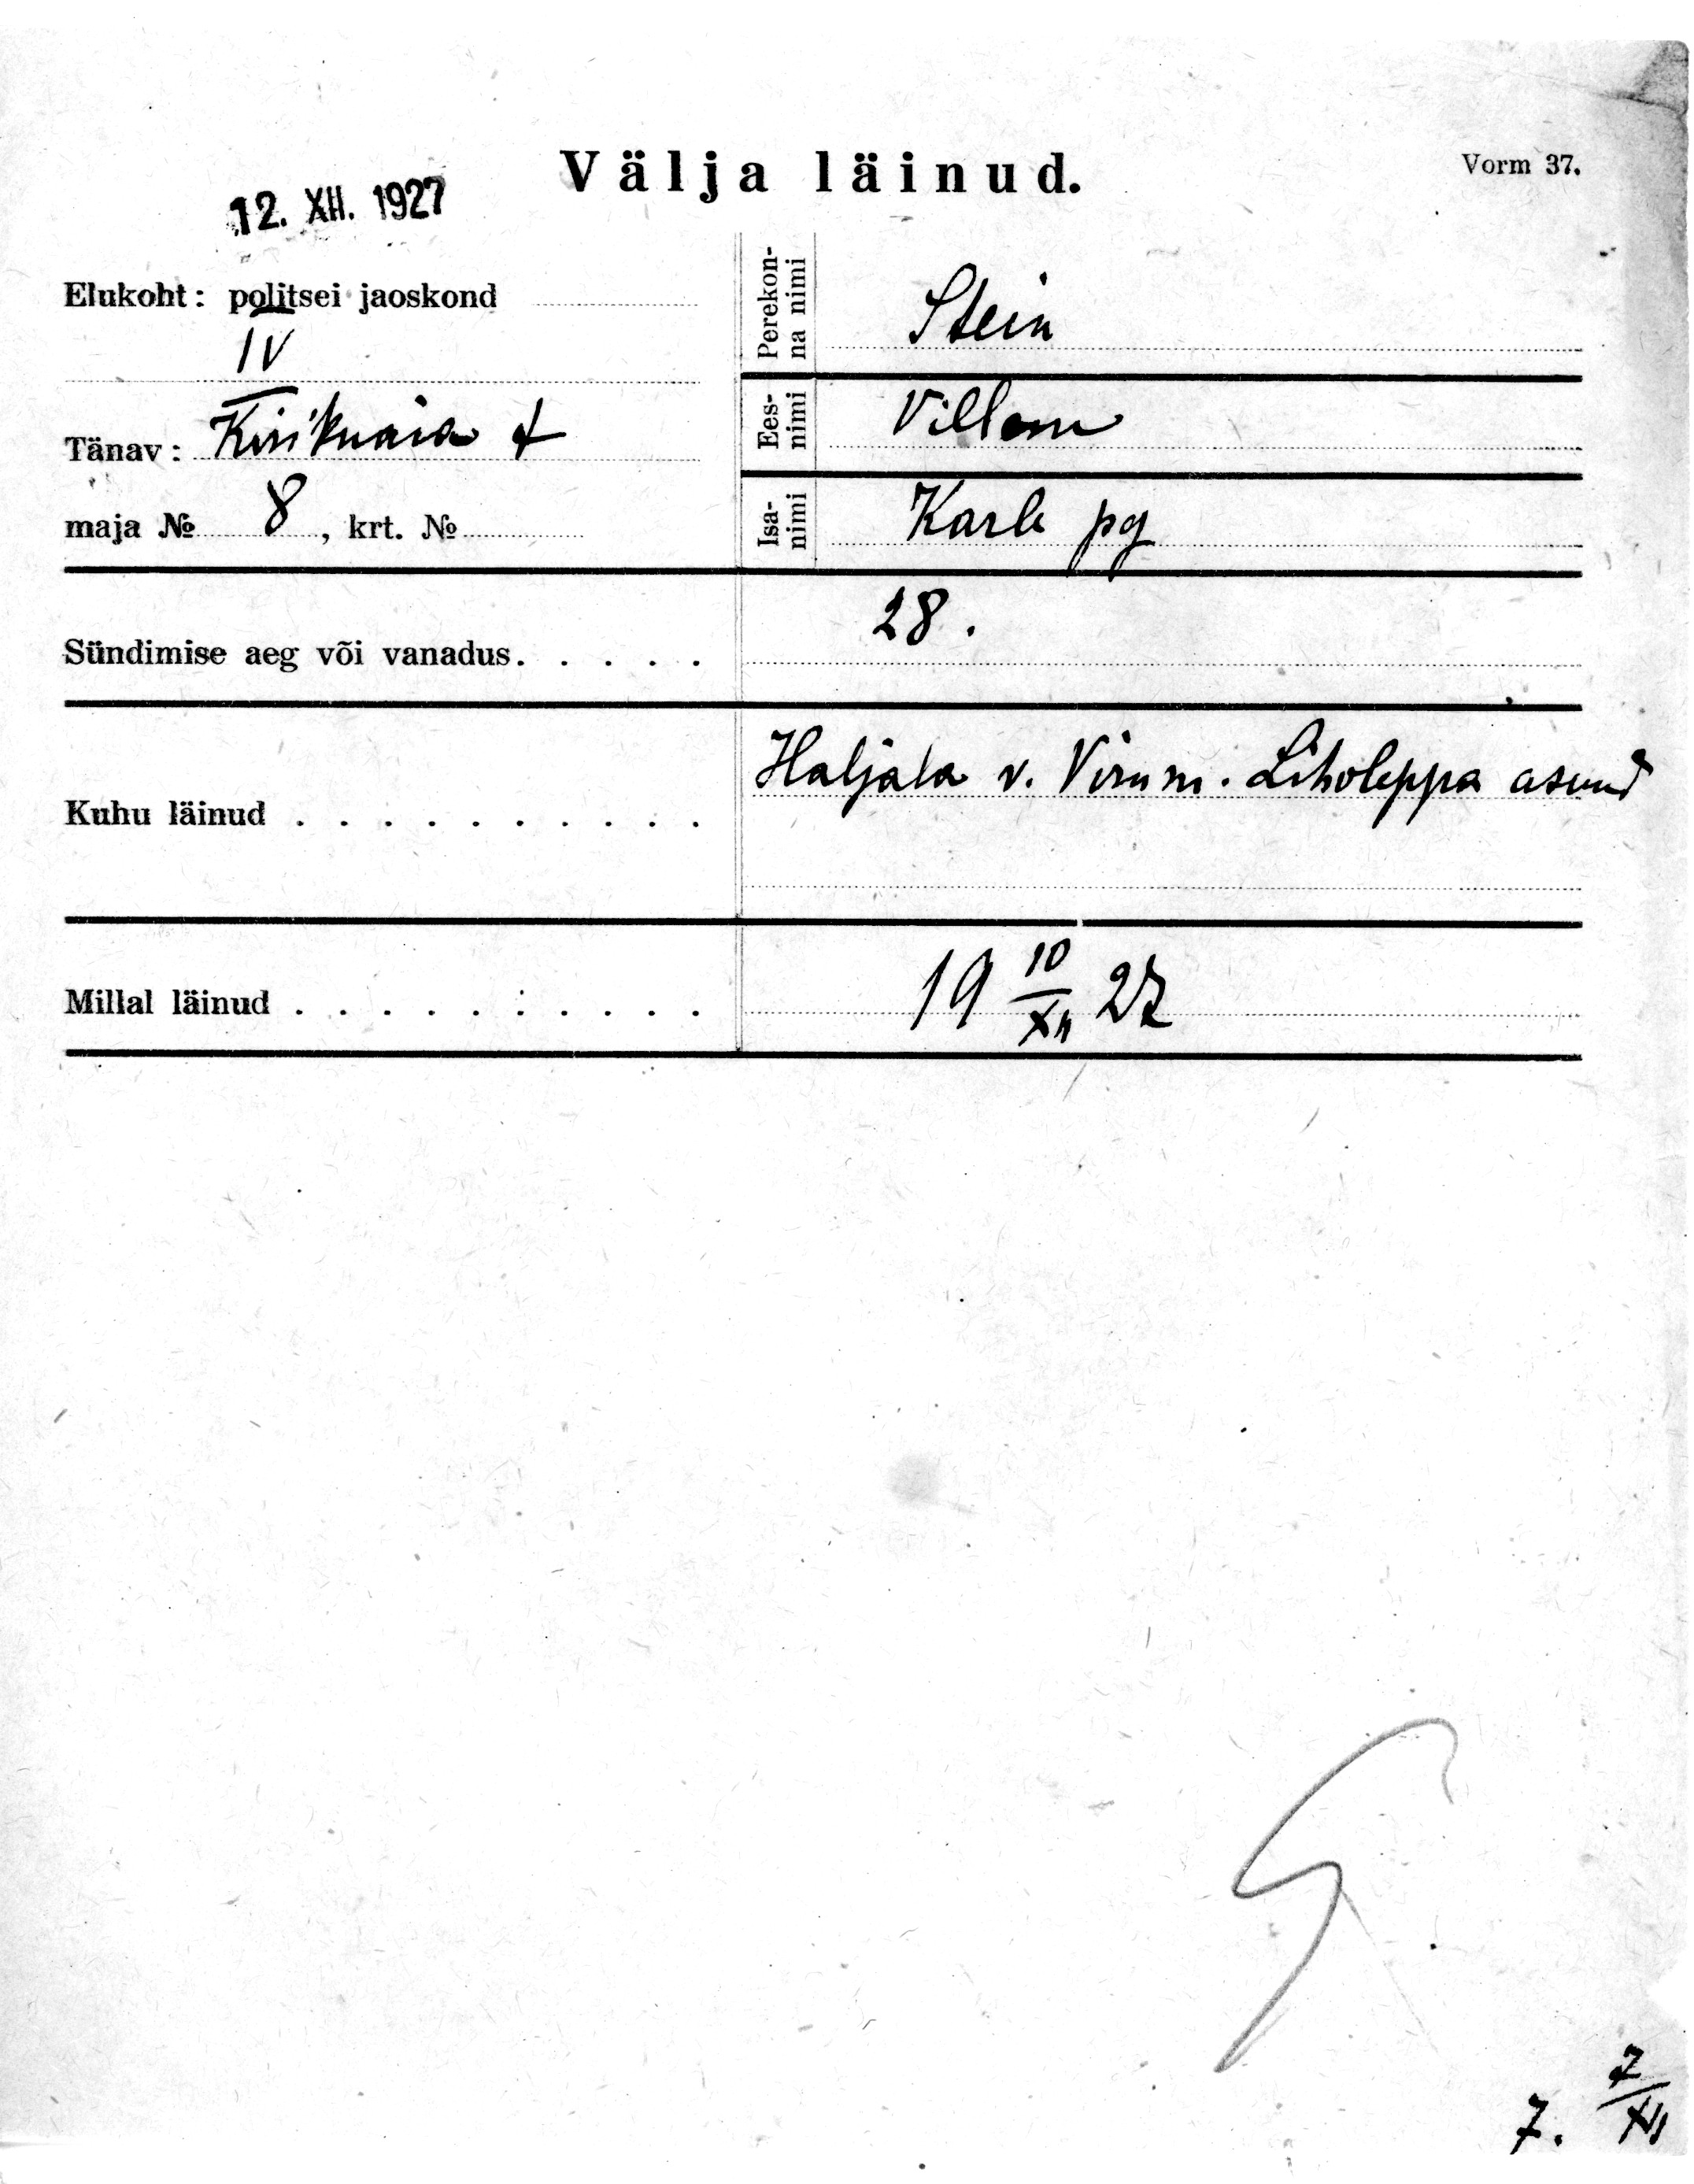 Välja läinud.
Vorm 37.
12. XII. 1927
Elukoht: politsei jaoskond
IV
Tänav: Kirikuaia t
maja № 8, krt. №
Perekon-
na nimi
Stein
Ees-
nimi
Villem
Isa-
nimi
Karli pg
Sündimise aeg või vanadus. . . . . 28.
Kuhu läinud . . . . . . . . . . Haljala v. Virum. Liholeppa asund
Millal läinud . . . . . . . . . . 19 10/XII 27
7. 7/XII